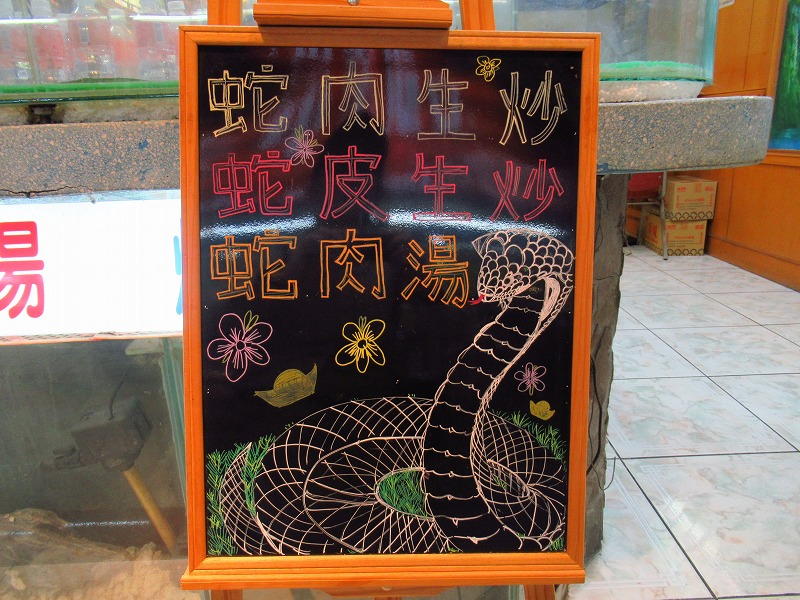 蛇肉生炒
蛇皮生炒
蛇肉湯
湯